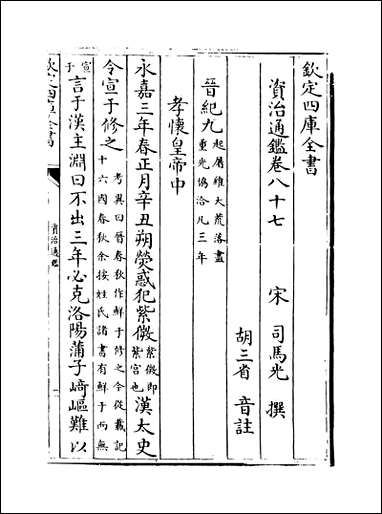 欽定四庫全書
資治通鑑卷八十七 宋 司馬光 撰
胡三省 音註
晉紀九 起屠維大荒落盡重光協洽凡三年
孝懷皇帝中
永嘉三年春正月辛丑朔熒惑犯紫微 紫微即紫宮也 漢太史
令宣于修之 考異曰晉春秋作鮮于修之今從載記十六國春秋余按姓氏諸書有鮮于而無
宣于 言于漢主淵曰不出三年必克洛陽蒲子崎嶇難以
資治通鑑